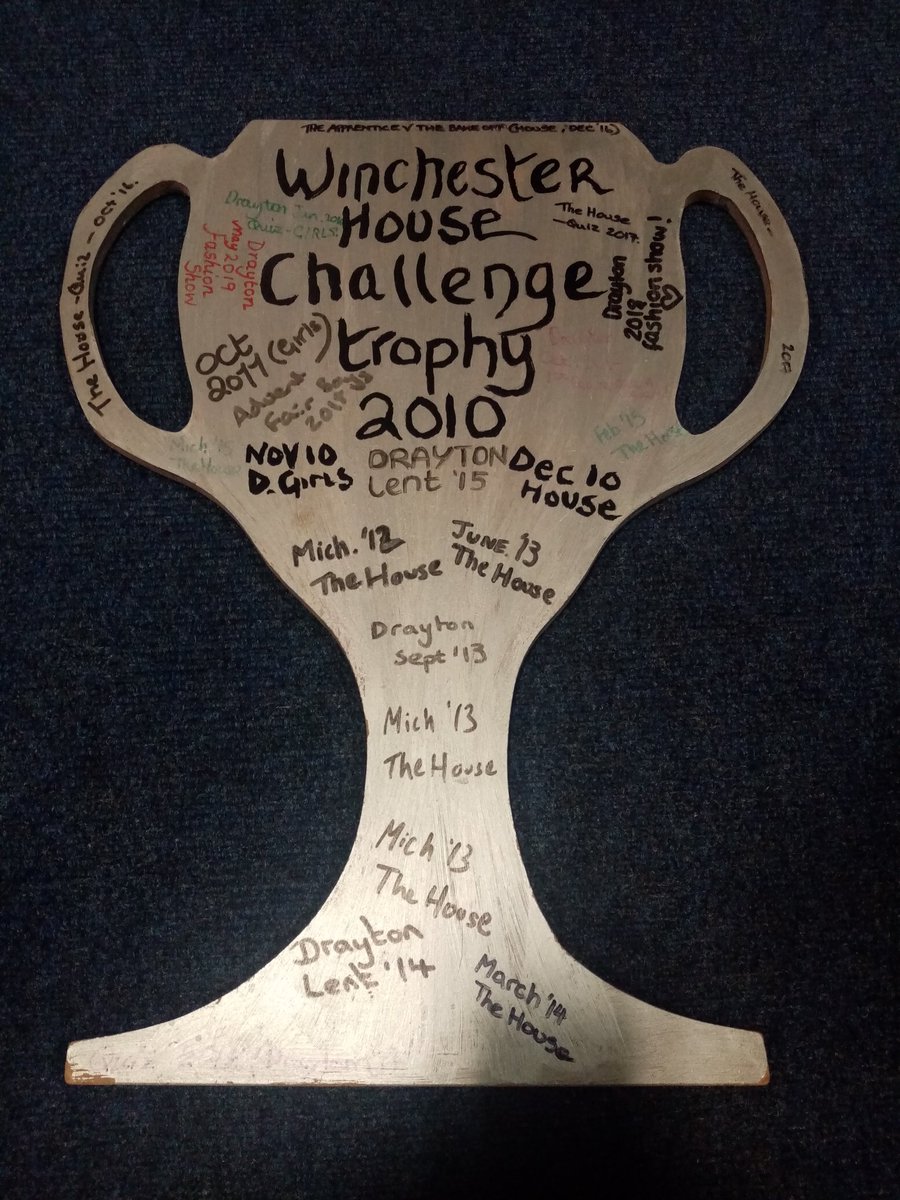 THE APPRENTICE V THE BAKE OFF (HOUSE, DEC '16)
WINCHESTER
HOUSE
Challenge
trophy
2010
The House - Quiz - Oct '16.
Drayton Jan
Quiz - GIRLS!
Drayton
may 2019
Fashion
Show
The House
- Quiz 2017.
Drayton
2018
fashion show!
The House -
OCT
2017 (Girls)
Advent
Fair Boys
Mich '15
The House
Feb '15
The House
NOV 10
D. GIRLS
DRAYTON
Lent '15
Dec 10
HOUSE
Mich. '12
The House
JUNE. '13
The House
Drayton
Sept '13
Mich '13
The House
Mich '13
The House
Drayton
Lent '14
March '14
The House